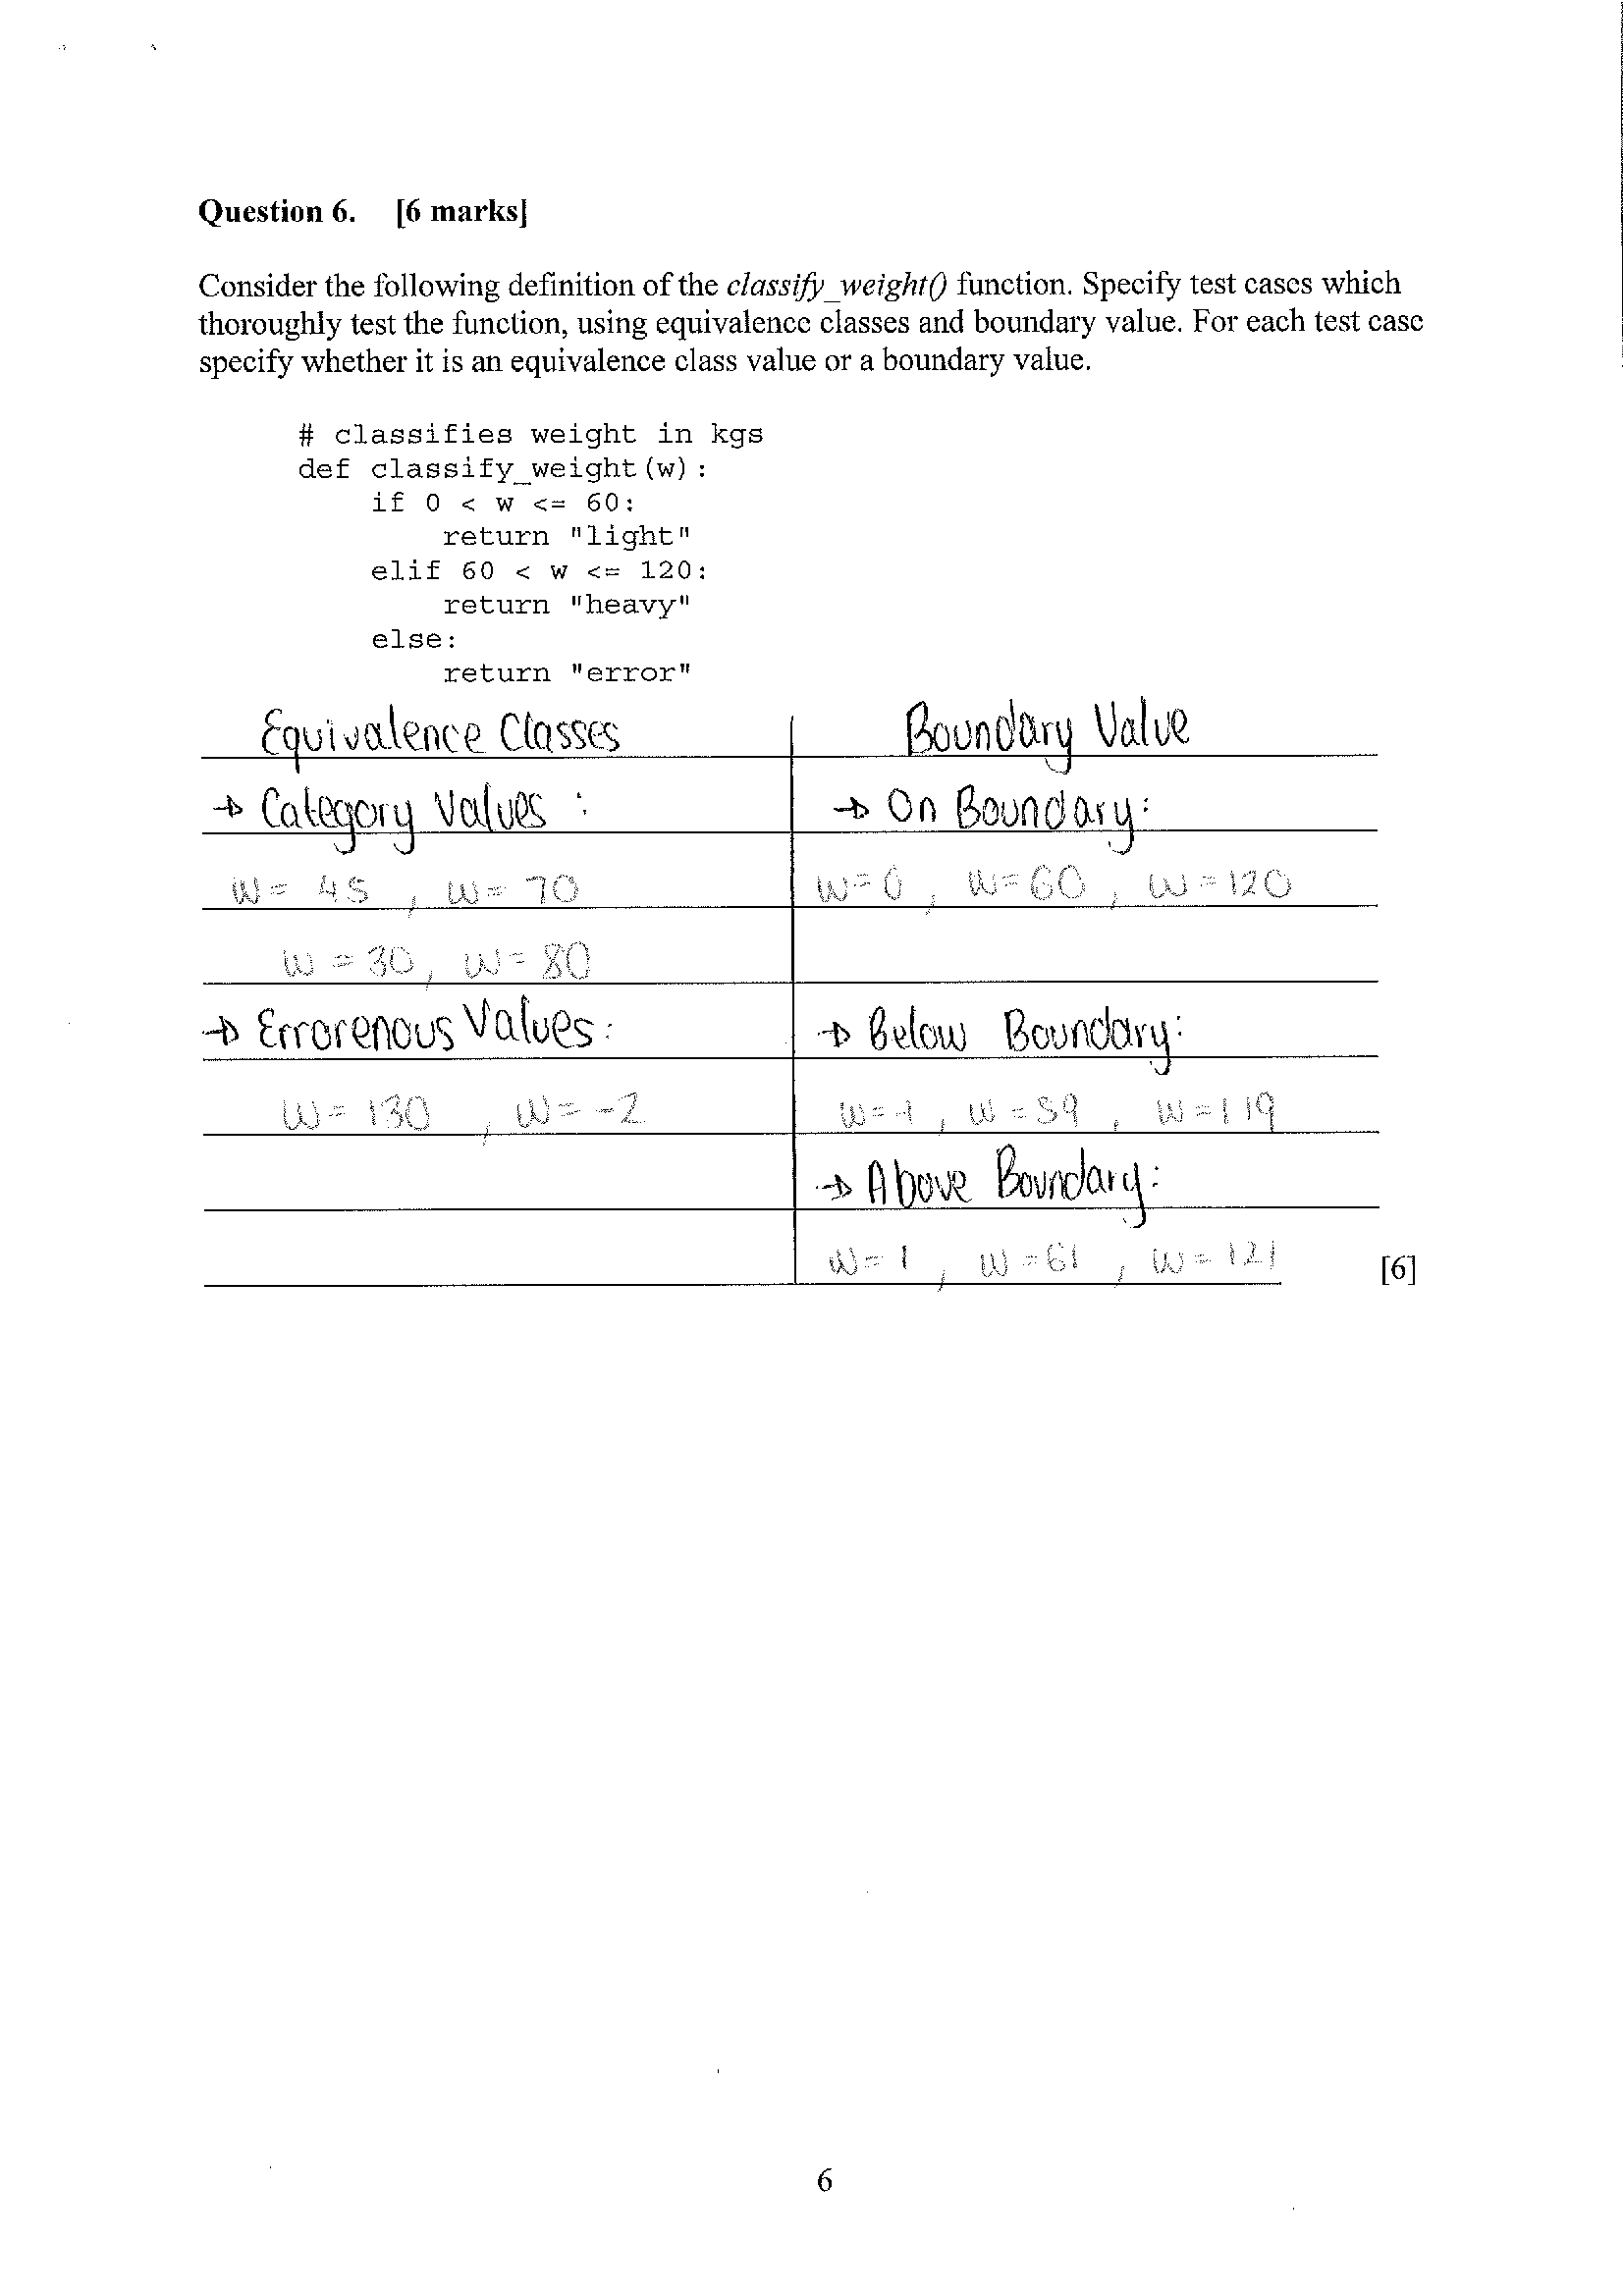 Question 6. [6 marks]
Consider the following definition of the classify_weight() function. Specify test cases which
thoroughly test the function, using equivalence classes and boundary value. For each test case
specify whether it is an equivalence class value or a boundary value.
# classifies weight in kgs
def classify_weight(w):
    if 0 < w <= 60:
        return "light"
    elif 60 < w <= 120:
        return "heavy"
    else:
        return "error"
Equivalence Classes
→ Category Values :
w = 45 , w = 70
w = 30, w = 80
→ Errorenous Values:
w = 130 , w = -2
Boundary Value
→ On Boundary:
w = 0 , w = 60 , w = 120
→ Below Boundary:
w = -1 , w = 59 , w = 119
→ Above Boundary:
w = 1 , w = 61 , w = 121
[6]
6